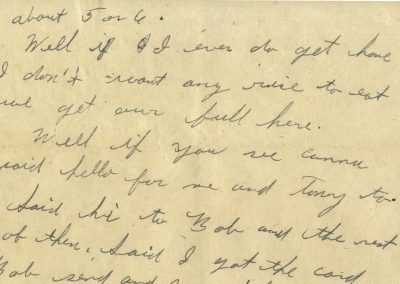 about 5 or 6.
Well if I ever do get home
I don't want any rice to eat
we get our full here.
Well if you see
said hello for me and Tony to.
Said hi to Bob and the rest
of then. Said I got the card
Bob send and